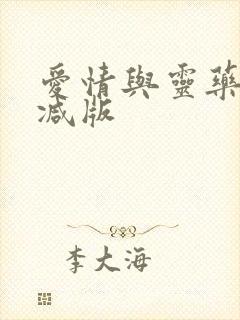 愛情與靈藥
減版
李大海